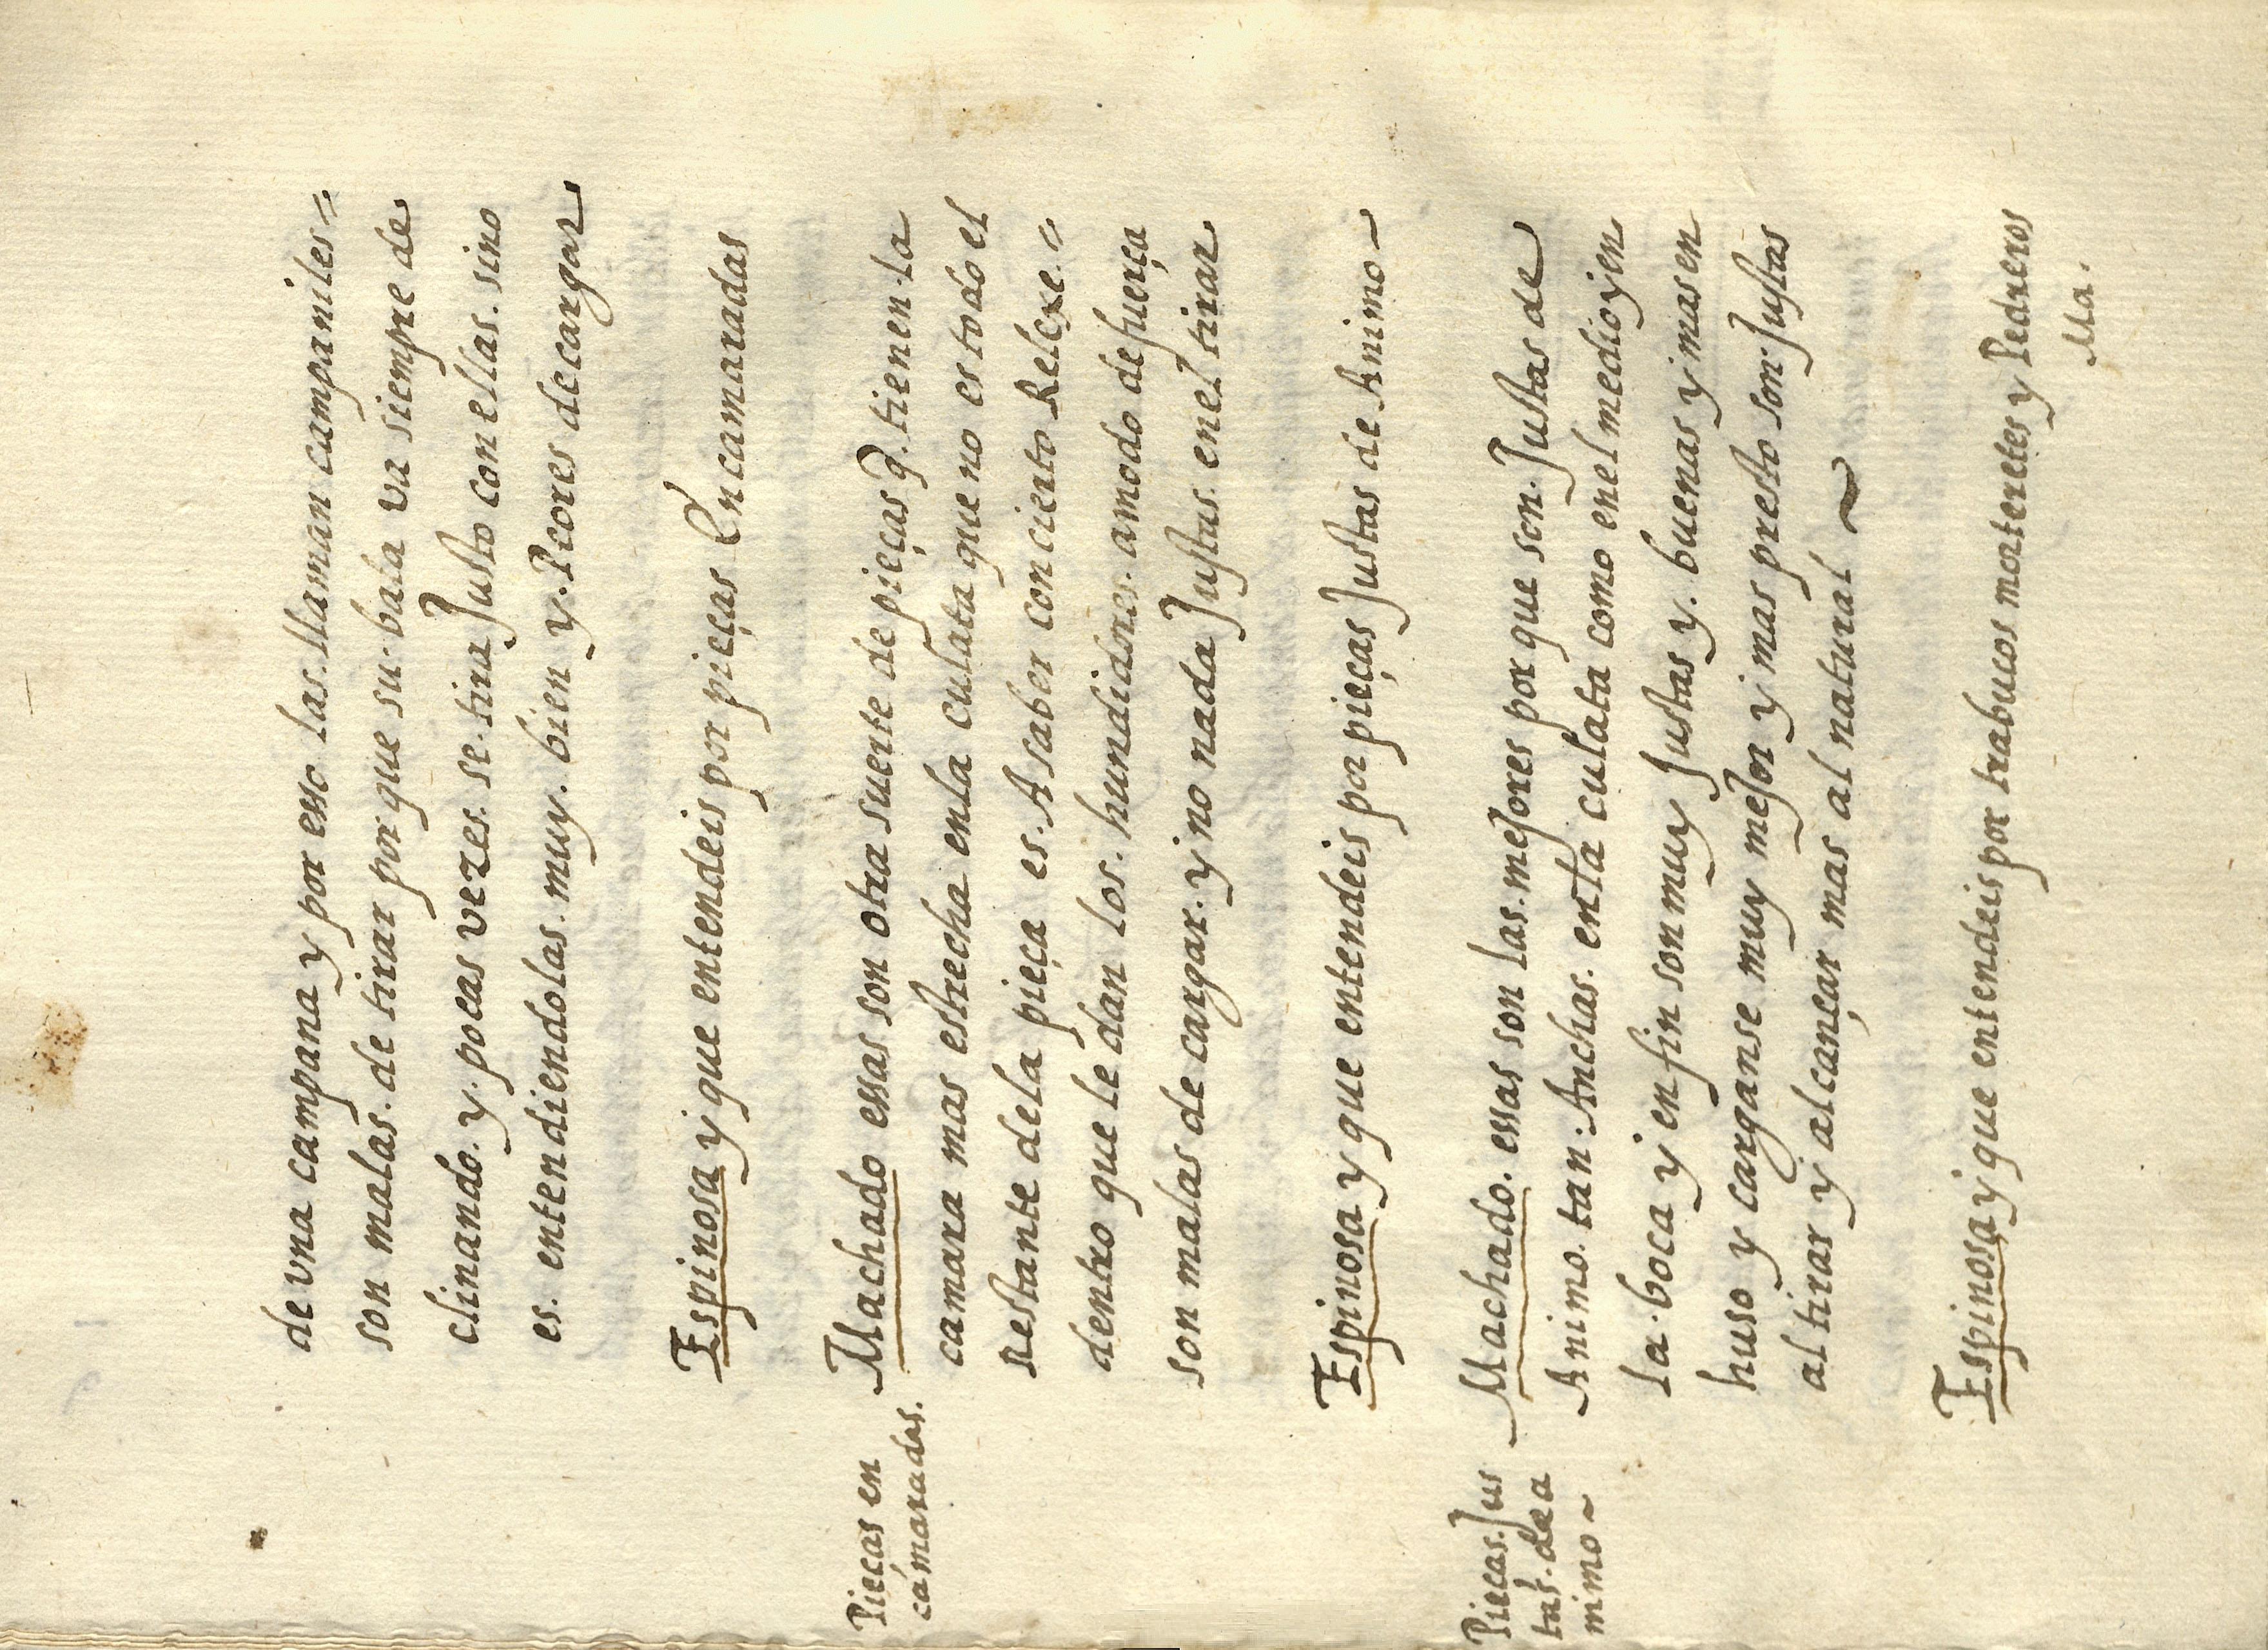 de vna campana y por esso las. llaman campaniles=
son malas. de tirar por que su. bala va siempre de
clinando. y. pocas vezes. se. tira Justo con ellas. sino
es. entendiendolas. muy. bien y. Peores de cargar
Espinosa y que entendeis por pieças Encamaradas
Pieças en
camaradas.
Machado essas son otra suerte de pieças q. tienen. la
camara mas estrecha en la culata que no es todo el
Restante de la pieça es. A saber con cierto Relexe. =
dentro que le dan los. hundidores. a modo de fuerça
son malas de cargar. y no nada Justas. en el tirar
Espinosa y que entendeis por pieças Justas de Animo ~
Pieças. Jus
tas. de a
nimo ~
Machado. essas son las. meJores por que son. Justas de
Animo. tan. Anchas. en la culata como en el medio y en
la. boca y en fin son muy Justas y. buenas y mas en
huso y carganse muy meJor y mas presto son. Justas
al tirar y alcançar mas al natural ~
Espinosa y que entendeis por trabucos morteretes y Pedreros
Ma.